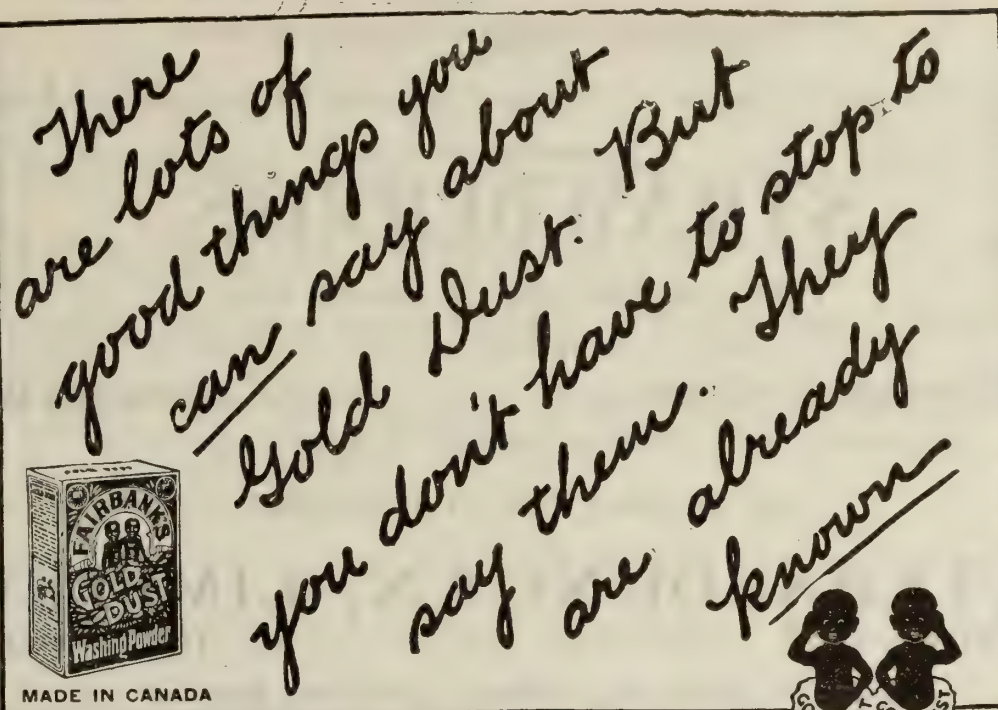 There
are lots of
good things you
can say about
Gold Dust. But
you don't have to stop to
say them. They
are already
known
FAIRBANK'S
GOLD
DUST
Washing Powder
MADE IN CANADA